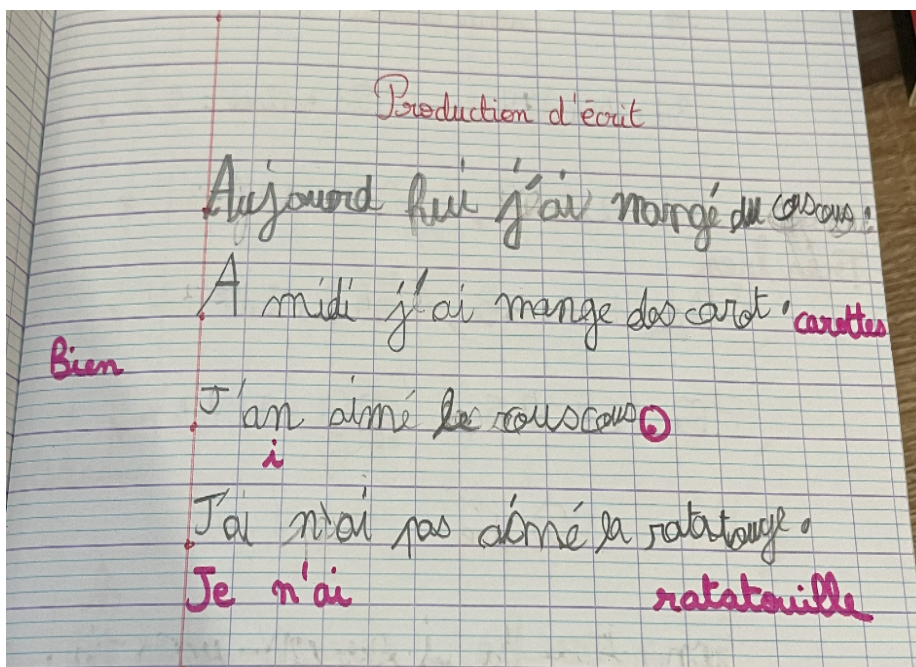 Production d'écrit
Aujourd hui j'ai mangé du couscous.
A midi j'ai mange des carot. carottes
Bien
J'an aimé le couscous.
i
J'ai n'ai pas aimé la ratatouye.
Je n'ai ratatouille